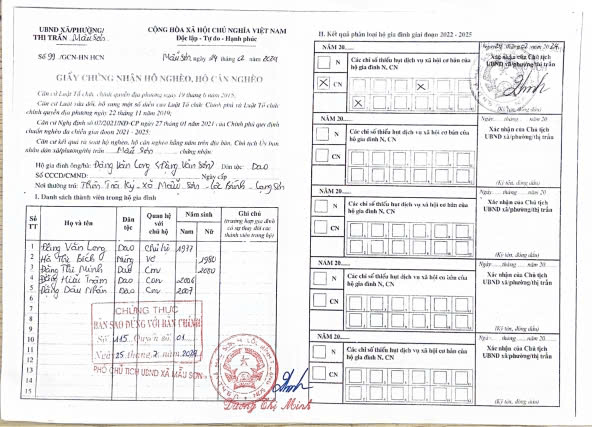 UBND XÃ/PHƯỜNG/
THỊ TRẤN Mẫu Sơn
Số: 99 /GCN-HN.HCN
CỘNG HÒA XÃ HỘI CHỦ NGHĨA VIỆT NAM
Độc lập - Tự do - Hạnh phúc
Mẫu Sơn, ngày 24 tháng 2024
GIẤY CHỨNG NHẬN HỘ NGHÈO, HỘ CẬN NGHÈO
Căn cứ Luật Tổ chức chính quyền địa phương ngày 19 tháng 6 năm 2015;
Căn cứ Luật sửa đổi, bổ sung một số điều của Luật Tổ chức Chính phủ và Luật Tổ chức chính quyền địa phương ngày 22 tháng 11 năm 2019;
Căn cứ Nghị định số 07/2021/NĐ-CP ngày 27 tháng 01 năm 2021 của Chính phủ quy định chuẩn nghèo đa chiều giai đoạn 2021 - 2025;
Căn cứ kết quả rà soát hộ nghèo, hộ cận nghèo hằng năm trên địa bàn, Chủ tịch Ủy ban nhân dân xã/phường/thị trấn Mẫu Sơn chứng nhận:
Hộ gia đình ông/bà: Đặng Văn Long (Đặng Văn Sơn) Dân tộc: Dao
Số CCCD/CMND:
Nơi thường trú: Thôn Trà Ký - xã Mẫu Sơn - Lộc Bình - Lạng Sơn
I. Danh sách thành viên trong hộ gia đình
Số TT
Họ và tên
Dân tộc
Quan hệ với chủ hộ
Năm sinh
Nam
Nữ
Ghi chú
(trường hợp gia đình có sự thay đổi các thành viên trong hộ)
1 Đặng Văn Long Dao Chủ hộ 1977
2 Hà Thị Bích Nùng Vợ 1980
3 Đặng Thị Minh Dao Con 2000
4 Đặng Hiếu Trầm Dao Con 2006
5 Đặng Dấu Nhần Dao Con 2007
6
7
8
9
10
11
12
13
14
15
CHỨNG THỰC
BẢN SAO ĐÚNG VỚI BẢN CHÍNH
Số: 115 Quyển số 01
Ngày 25 tháng 2 năm 2024
PHÓ CHỦ TỊCH UBND XÃ MẪU SƠN
Dương Thị Minh
II. Kết quả phân loại hộ gia đình giai đoạn 2022 - 2025
NĂM 20
N
CN
Các chỉ số thiếu hụt dịch vụ xã hội cơ bản của hộ gia đình N, CN
Xác nhận của Chủ tịch UBND xã/phường/thị trấn
(Ký tên, đóng dấu)
NĂM 20
N
CN
Các chỉ số thiếu hụt dịch vụ xã hội cơ bản của hộ gia đình N, CN
Ngày tháng năm 20
Xác nhận của Chủ tịch UBND xã/phường/thị trấn
(Ký tên, đóng dấu)
NĂM 20
N
CN
Các chỉ số thiếu hụt dịch vụ xã hội cơ bản của hộ gia đình N, CN
Ngày tháng năm 20
Xác nhận của Chủ tịch UBND xã/phường/thị trấn
(Ký tên, đóng dấu)
NĂM 20
N
CN
Các chỉ số thiếu hụt dịch vụ xã hội cơ bản của hộ gia đình N, CN
Ngày tháng năm 20
Xác nhận của Chủ tịch UBND xã/phường/thị trấn
(Ký tên, đóng dấu)
NĂM 20
N
CN
Các chỉ số thiếu hụt dịch vụ xã hội cơ bản của hộ gia đình N, CN
Ngày tháng năm 20
Xác nhận của Chủ tịch UBND xã/phường/thị trấn
(Ký tên, đóng dấu)